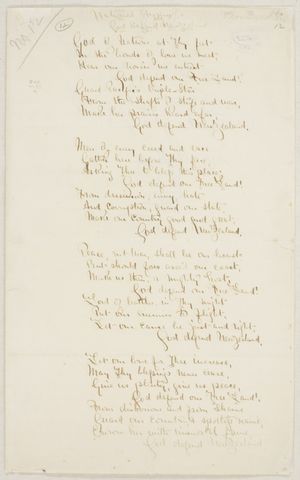 National Hymn
God Defend New Zealand
12
God of Nations at Thy feet
In the bonds of love we meet,
Hear our voices we entreat
God defend our Free Land!
Guard Pacific's triple Star
From the shafts of strife and war,
Make her praises heard afar
God defend New Zealand.
Men of every creed and race
Gather here before Thy face,
Asking Thee to bless this place;
God defend our Free Land!
From dissension, envy, hate
And corruption, guard our state,
Make our Country good and great,
God defend New Zealand.
Peace, not war, shall be our boast
But should foes assail our coast,
Make us then a mighty host,
God defend our Free Land!
Lord of battles in Thy might
Put our enemies to flight,
Let our cause be just and right,
God defend New Zealand.
Let our love for Thee increase,
May Thy blessings never cease,
Give us plenty, give us peace,
God defend our Free Land!
From dishonour and from shame
Guard our country's spotless name,
Crown her with immortal fame
God defend New Zealand